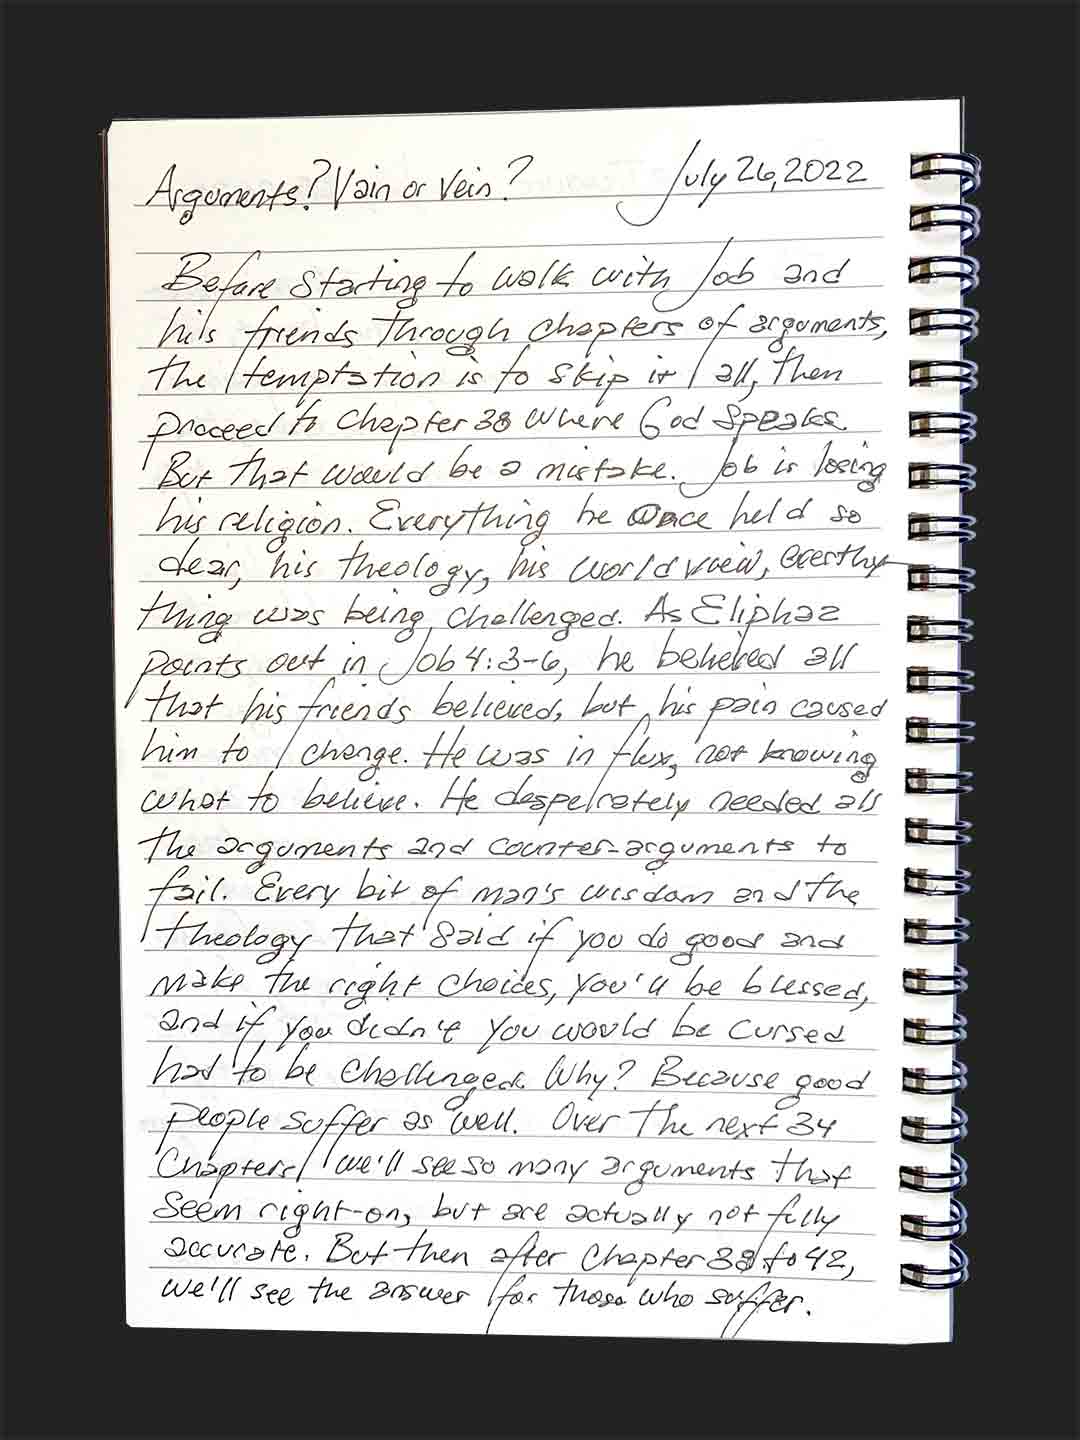 Arguments? Vain or Vein? July 26, 2022
Before starting to walk with Job and
his friends through chapters of arguments,
the temptation is to skip it all, then
proceed to Chapter 38 where God speaks.
But that would be a mistake. Job is losing
his religion. Everything he once held so
dear, his theology, his world view, everthy
thing was being challenged. As Eliphaz
points out in Job 4:3-6, he believed all
that his friends believed, but his pain caused
him to change. He was in flux, not knowing
what to believe. He desperately needed all
the arguments and counter-arguments to
fail. Every bit of man's wisdom and the
theology that said if you do good and
make the right choices, you'll be blessed,
and if you didn't you would be cursed
had to be challenged. Why? Because good
people suffer as well. Over the next 34
Chapters, we'll see so many arguments that
seem right-on, but are actually not fully
accurate. But then after Chapter 38 to 42,
we'll see the answer for those who suffer.